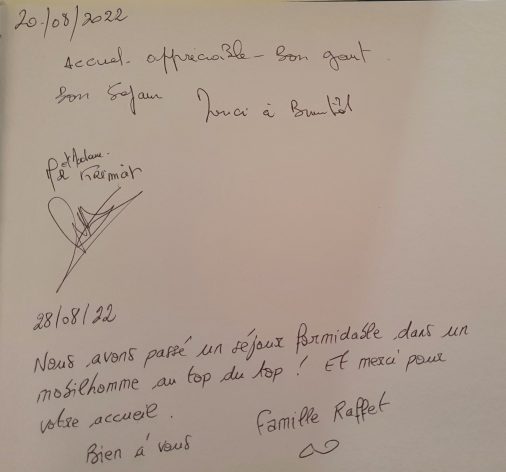 20/08/2022
Accueil appréciable - Bon gout
Bon séjour Merci à
et Madame
28/08/22
Nous avons passé un séjour formidable dans un
mobilhomme au top du top ! Et merci pour
votre accueil.
Bien à vous Famille Raffet